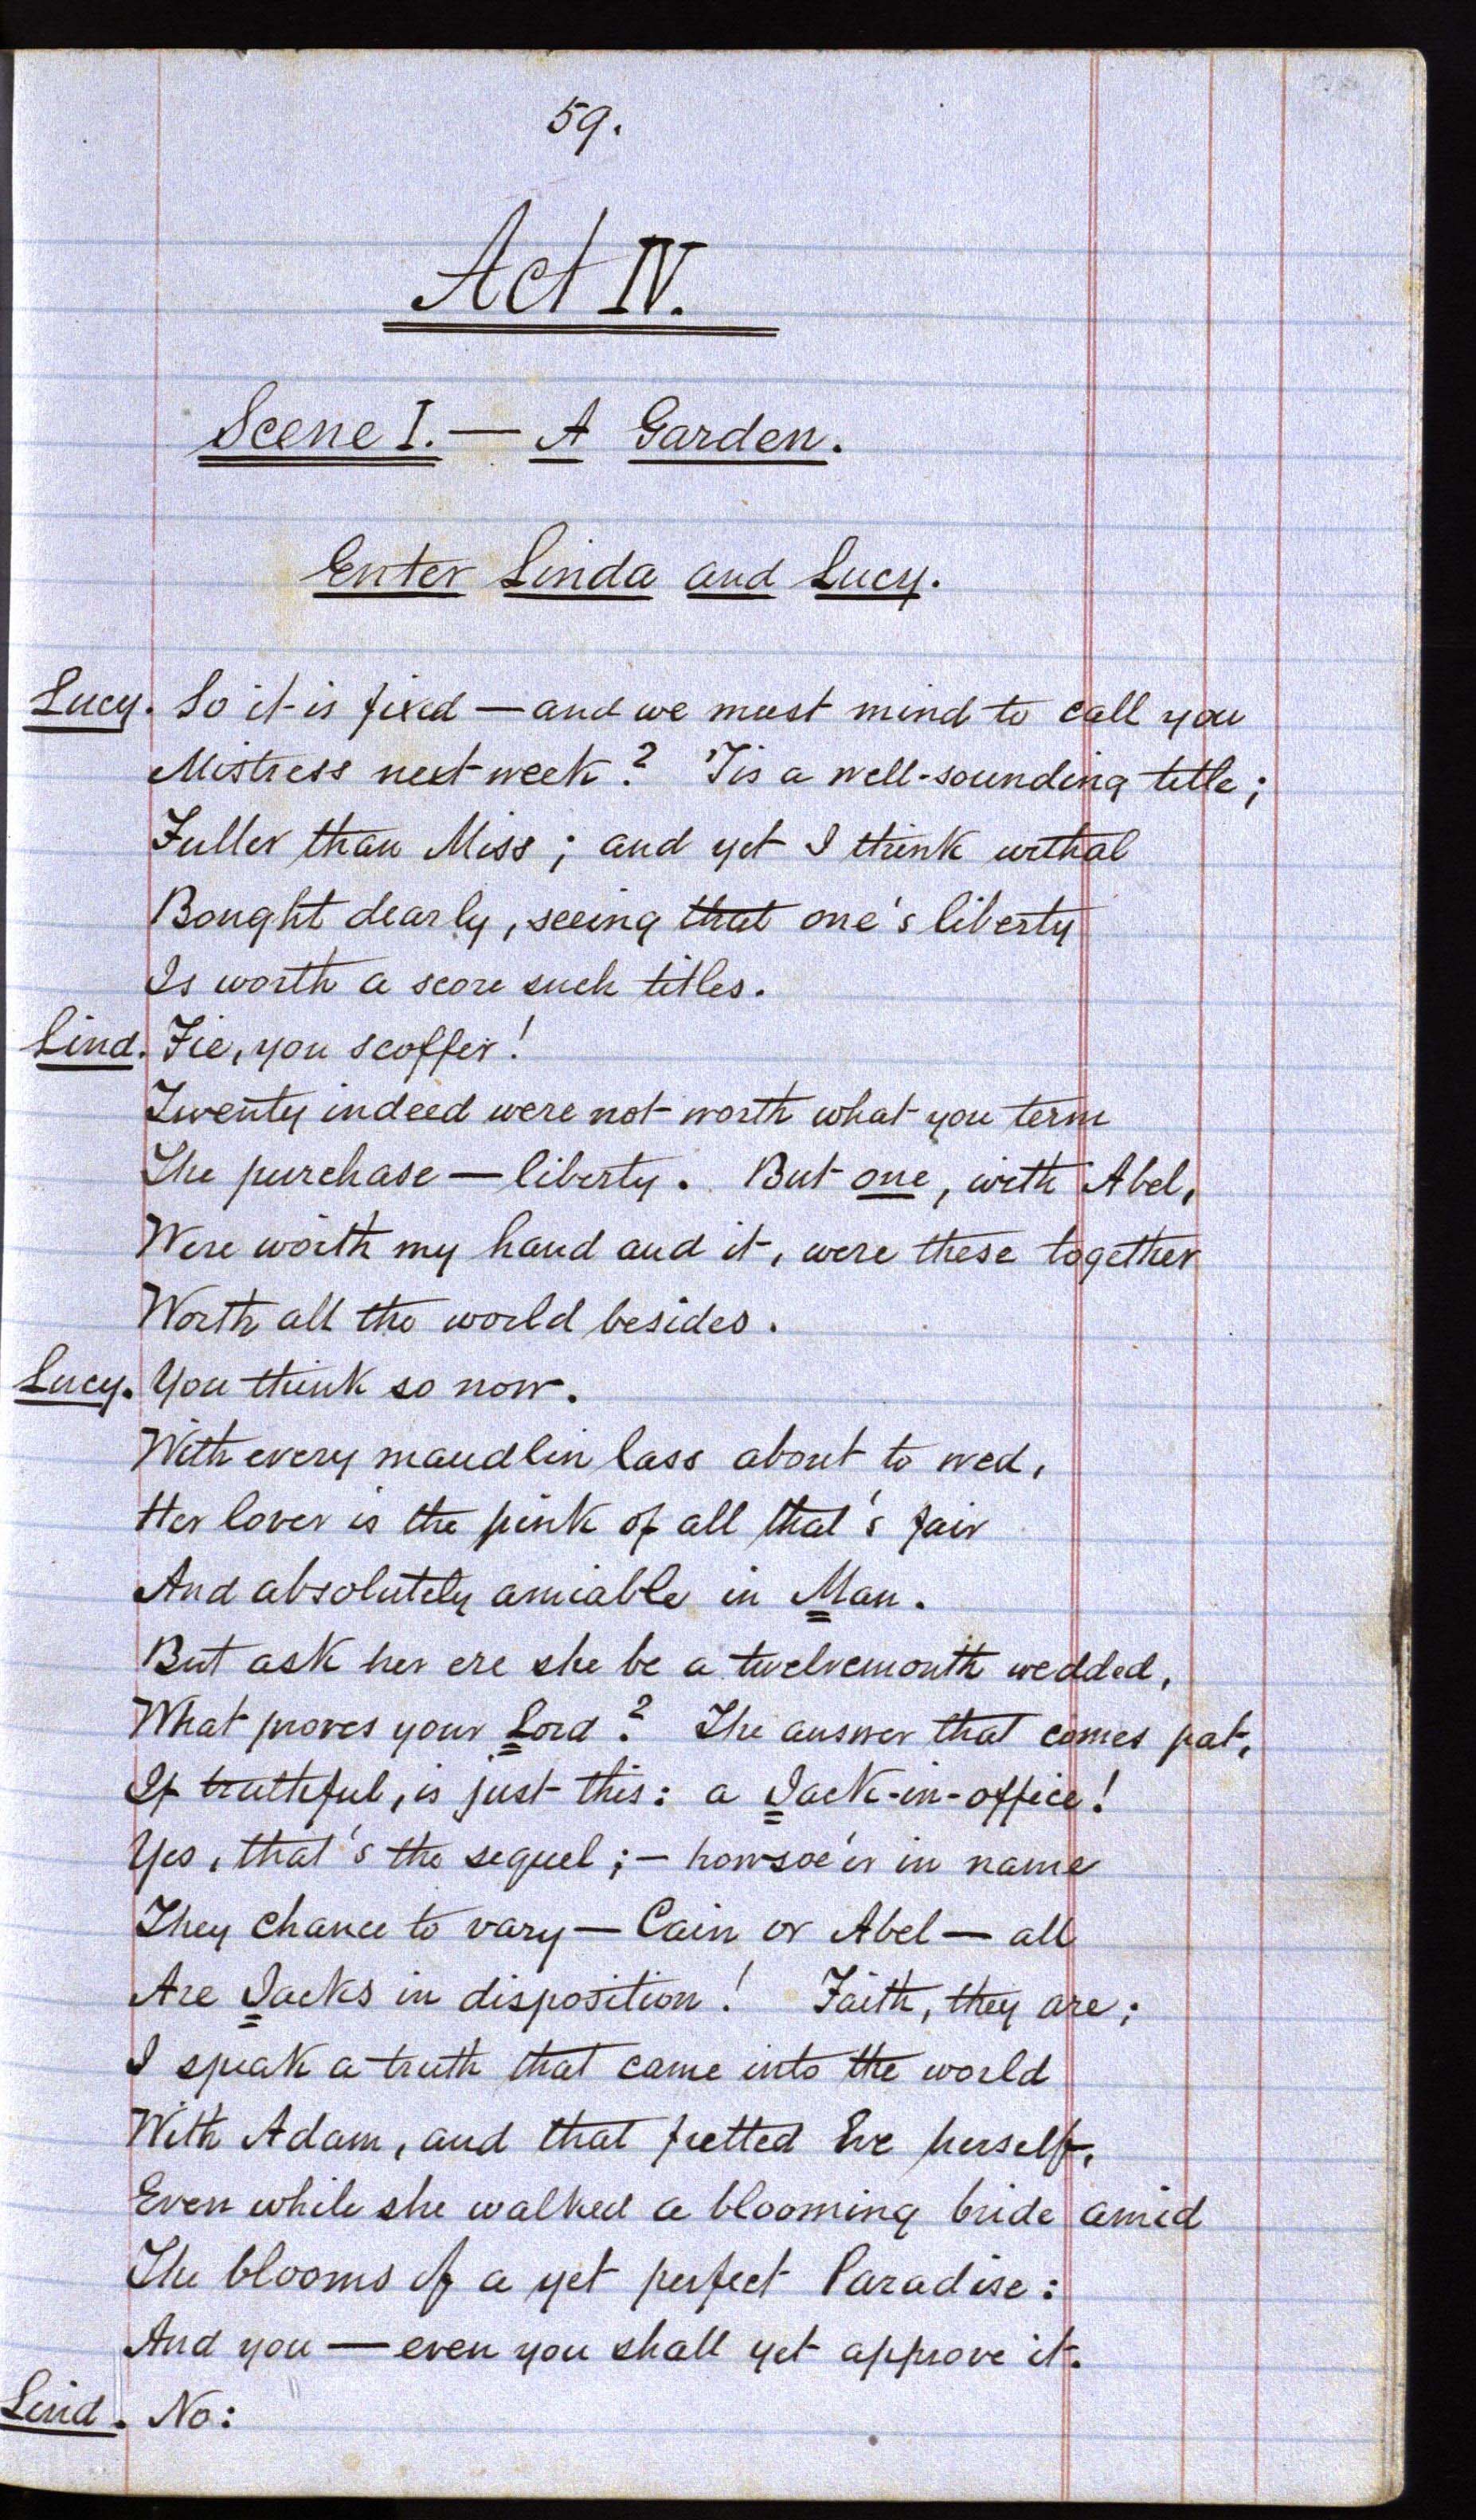 59.
Act IV.
Scene I. — A Garden.
Enter Linda and Lucy.
Lucy. So it is fixed — and we must mind to call you
Mistress next week? 'Tis a well-sounding title;
Fuller than Miss; and yet I think withal
Bought dearly, seeing that one's liberty
Is worth a score such titles.
Lind. Fie, you scoffer!
Twenty indeed were not worth what you term
The purchase — liberty. But one, with Abel,
Were worth my hand and it, were these together
Worth all the world besides.
Lucy. You think so now.
With every maudlin lass about to wed,
Her lover is the pink of all that's fair
And absolutely amiable in Man.
But ask her ere she be a twelvemonth wedded,
What proves your Lord? The answer that comes pat,
If truthful, is just this: a Jack-in-office!
Yes, that's the sequel; — howsoe'er in name
They chance to vary — Cain or Abel — all
Are Jacks in disposition! Faith, they are;
I speak a truth that came into the world
With Adam, and that fretted Eve herself,
Even while she walked a blooming bride amid
The blooms of a yet perfect Paradise:
And you — even you shall yet approve it.
Lind. No: